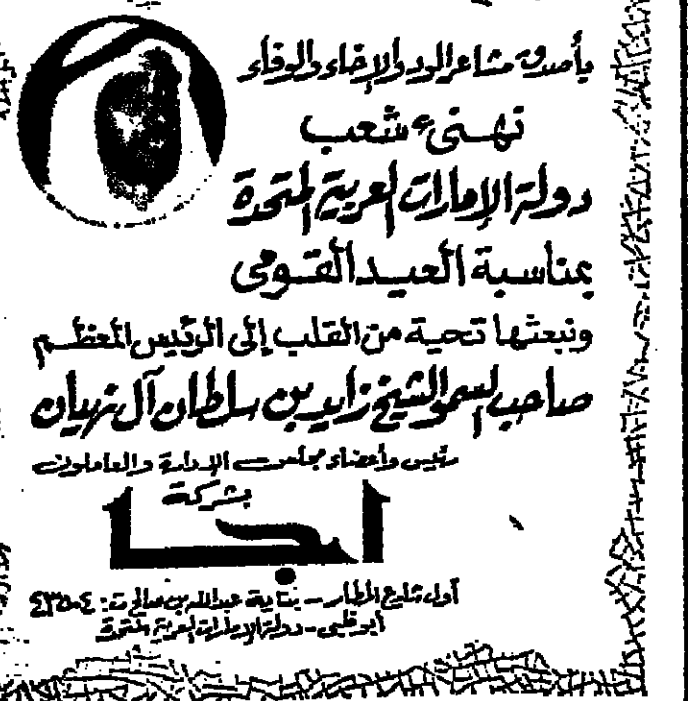 بأصدق مشاعر الود والإخاء والوفاء
نهنىء شعب
دولة الإمارات العربية المتحدة
بمناسبة العيد القومى
ونبعثها تحية من القلب إلى الرئيس المعظم
صاحب السمو الشيخ زايد بن سلطان آل نهيان
رئيس وأعضاء مجلس الإدارة والعاملون
بشركة
أول شارع المطار - بناية عبدالله بن صالح ت:
أبوظبى - دولة الإمارات العربية المتحدة